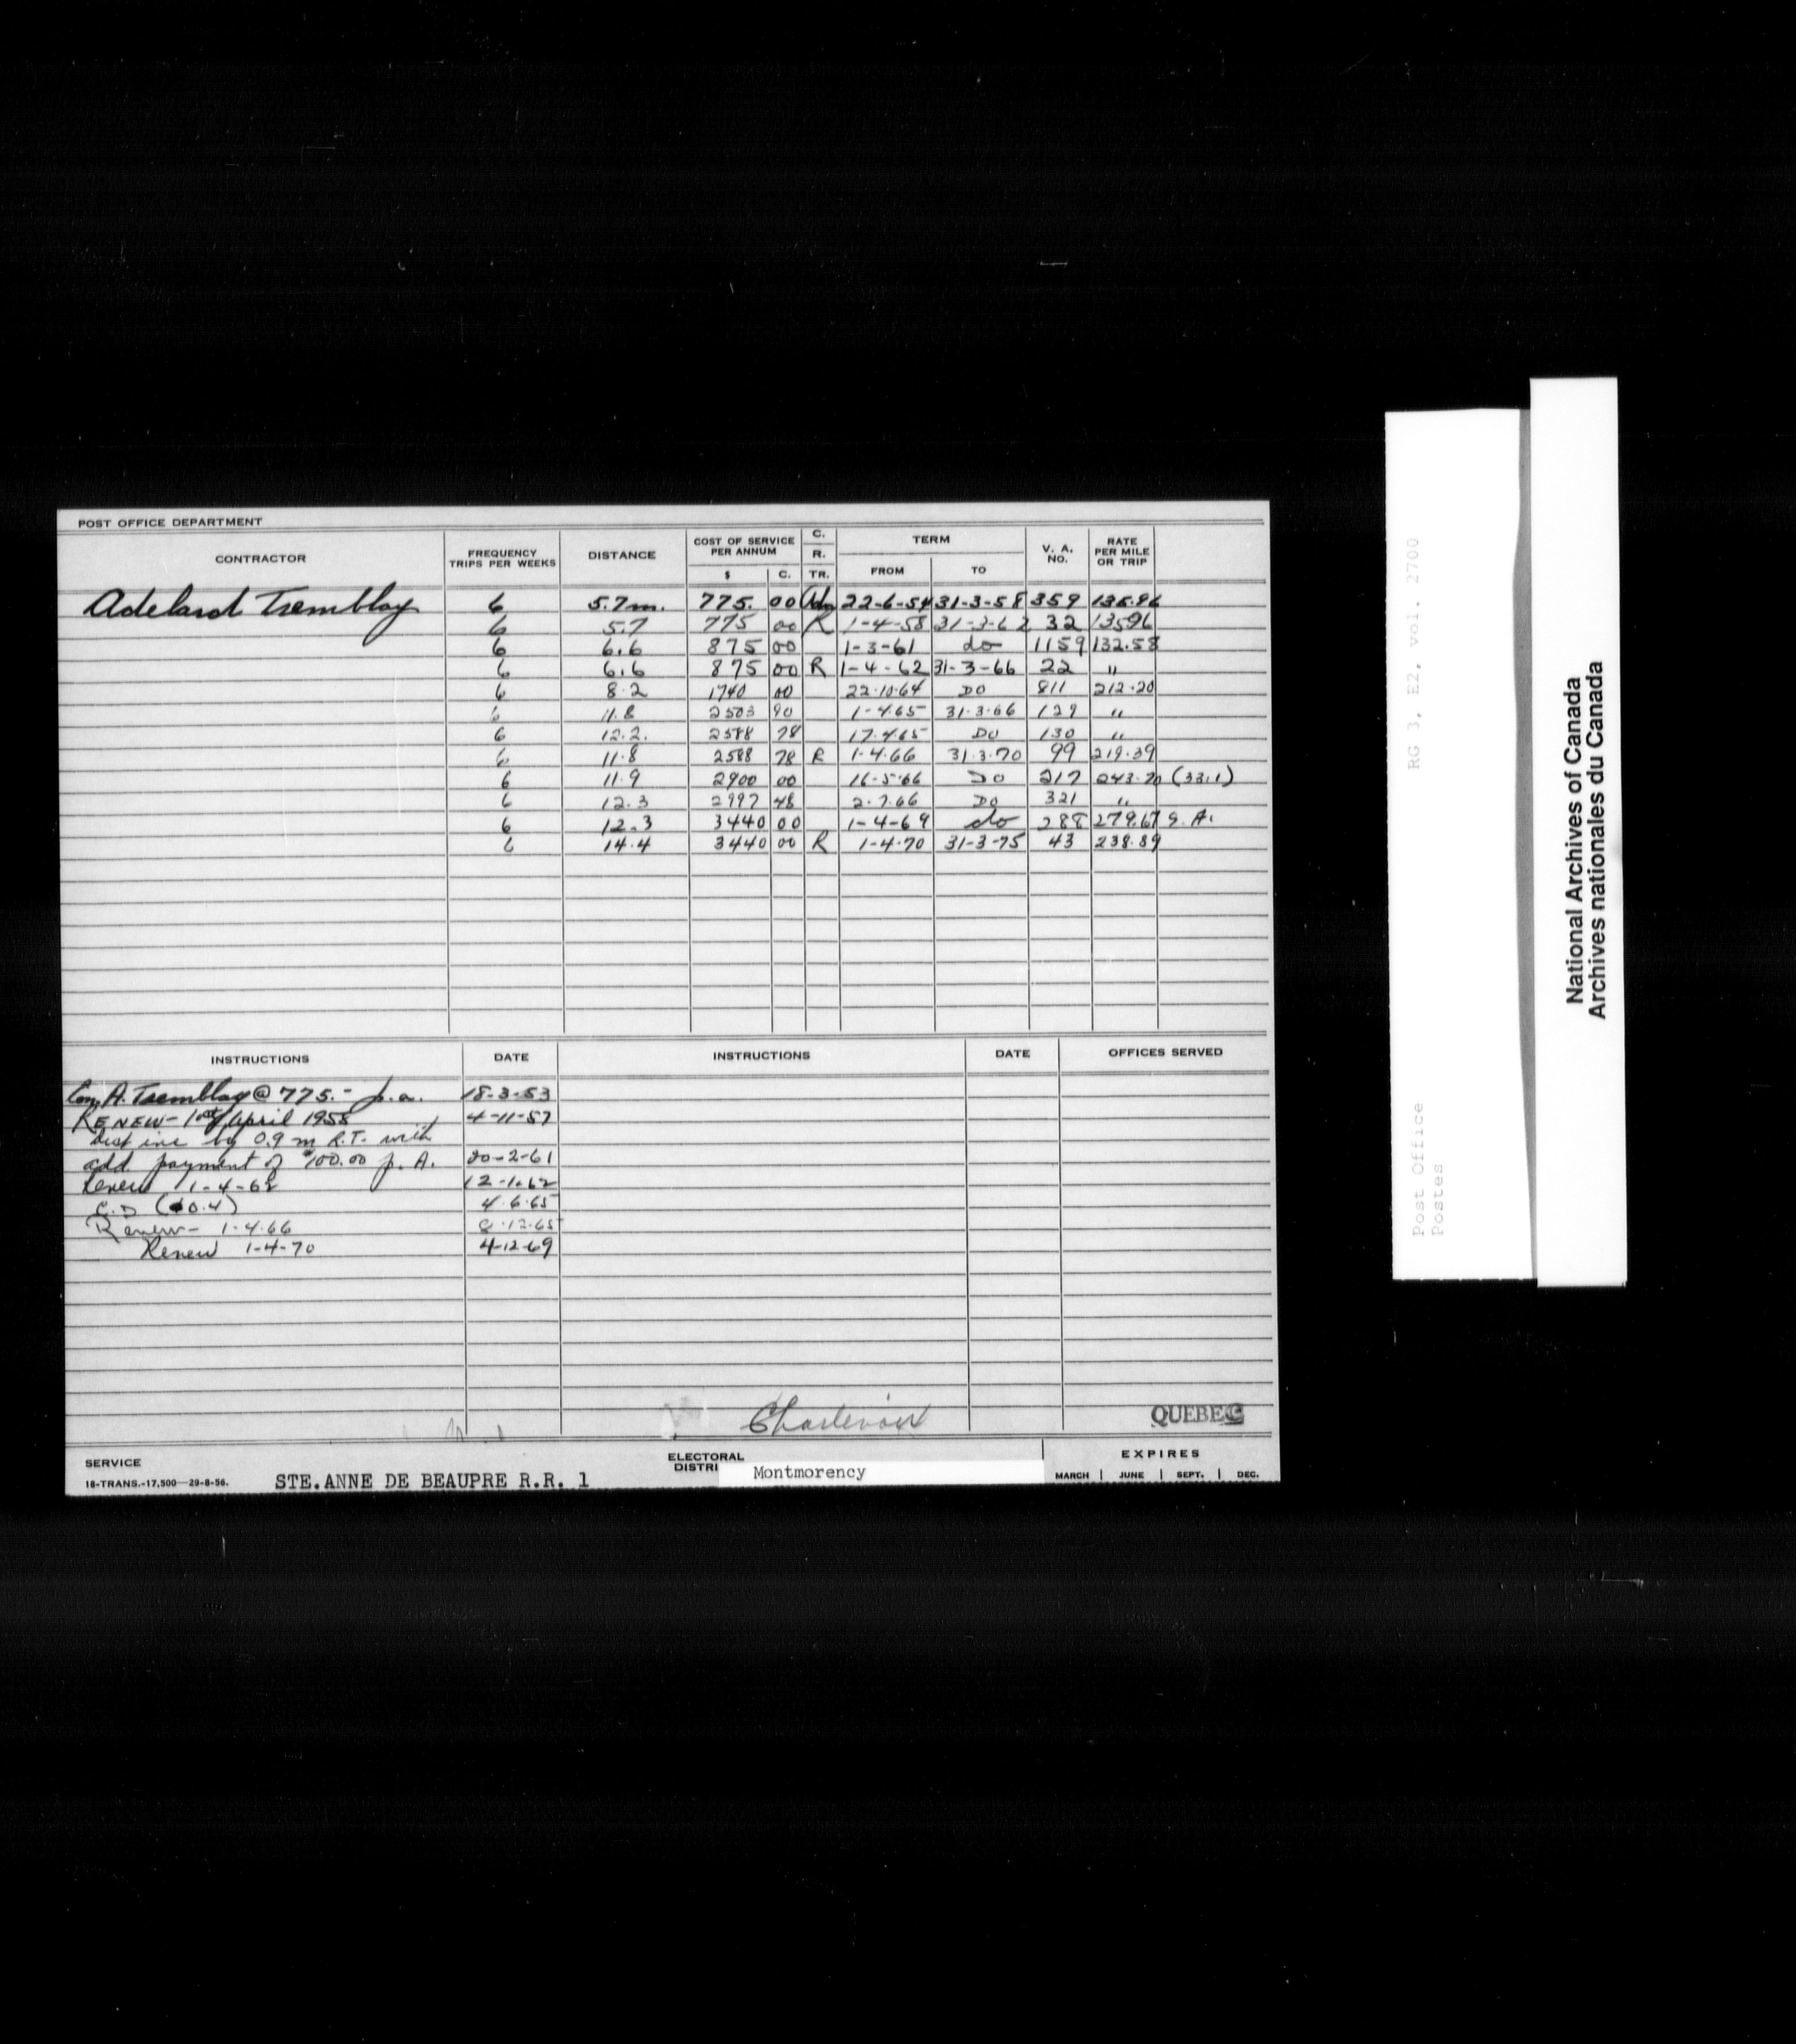 POST OFFICE DEPARTMENT
CONTRACTOR FREQUENCY TRIPS PER WEEKS DISTANCE COST OF SERVICE PER ANNUM $ C. C. R. TR. TERM FROM TO V. A. NO. RATE PER MILE OR TRIP
Adelard Tremblay 6 5.7 m. 775. 00 22-6-54 31-3-58 359 135.96
6 5.7 775 00 R 1-4-58 31-3-62 32 135.96
6 6.6 875 00 1-3-61 do 1159 132.58
6 6.6 875 00 R 1-4-62 31-3-66 22 "
6 8.2 1740 00 22.10.64 DO 811 212.20
6 11.8 2503 90 1-4.65 31.3.66 129 "
6 12.2. 2588 78 17.4.65 DO 130 "
6 11.8 2588 78 R 1-4.66 31.3.70 99 219.39
6 11.9 2900 00 16-5-66 DO 217 243.70 (33.1)
6 12.3 2997 48 2.7.66 DO 321 "
6 12.3 3440 00 1-4-69 do 288 279.67 G. A.
6 14.4 3440 00 R 1-4-70 31-3-75 43 238.89
INSTRUCTIONS DATE INSTRUCTIONS DATE OFFICES SERVED
A. Tremblay @ 775.- p.a. 18-3-53
RENEW - 1st of April 1958 4-11-57
Dist inc by 0.9 m R.T. with
add. payment of $100.00 p. A. 20-2-61
Renew 1-4-62 12-1-62
C.D (0.4) 4.6.65
Renew - 1.4.66 8.12.65
Renew 1-4-70 4-12-69
Charlevoix
QUEBEC
SERVICE
18-TRANS.-17,500—29-8-56.
STE.ANNE DE BEAUPRE R.R. 1
ELECTORAL
DISTRI
Montmorency
EXPIRES
MARCH JUNE SEPT. DEC.
RG 3, E2, vol. 2700
Post Office
Postes
National Archives of Canada
Archives nationales du Canada